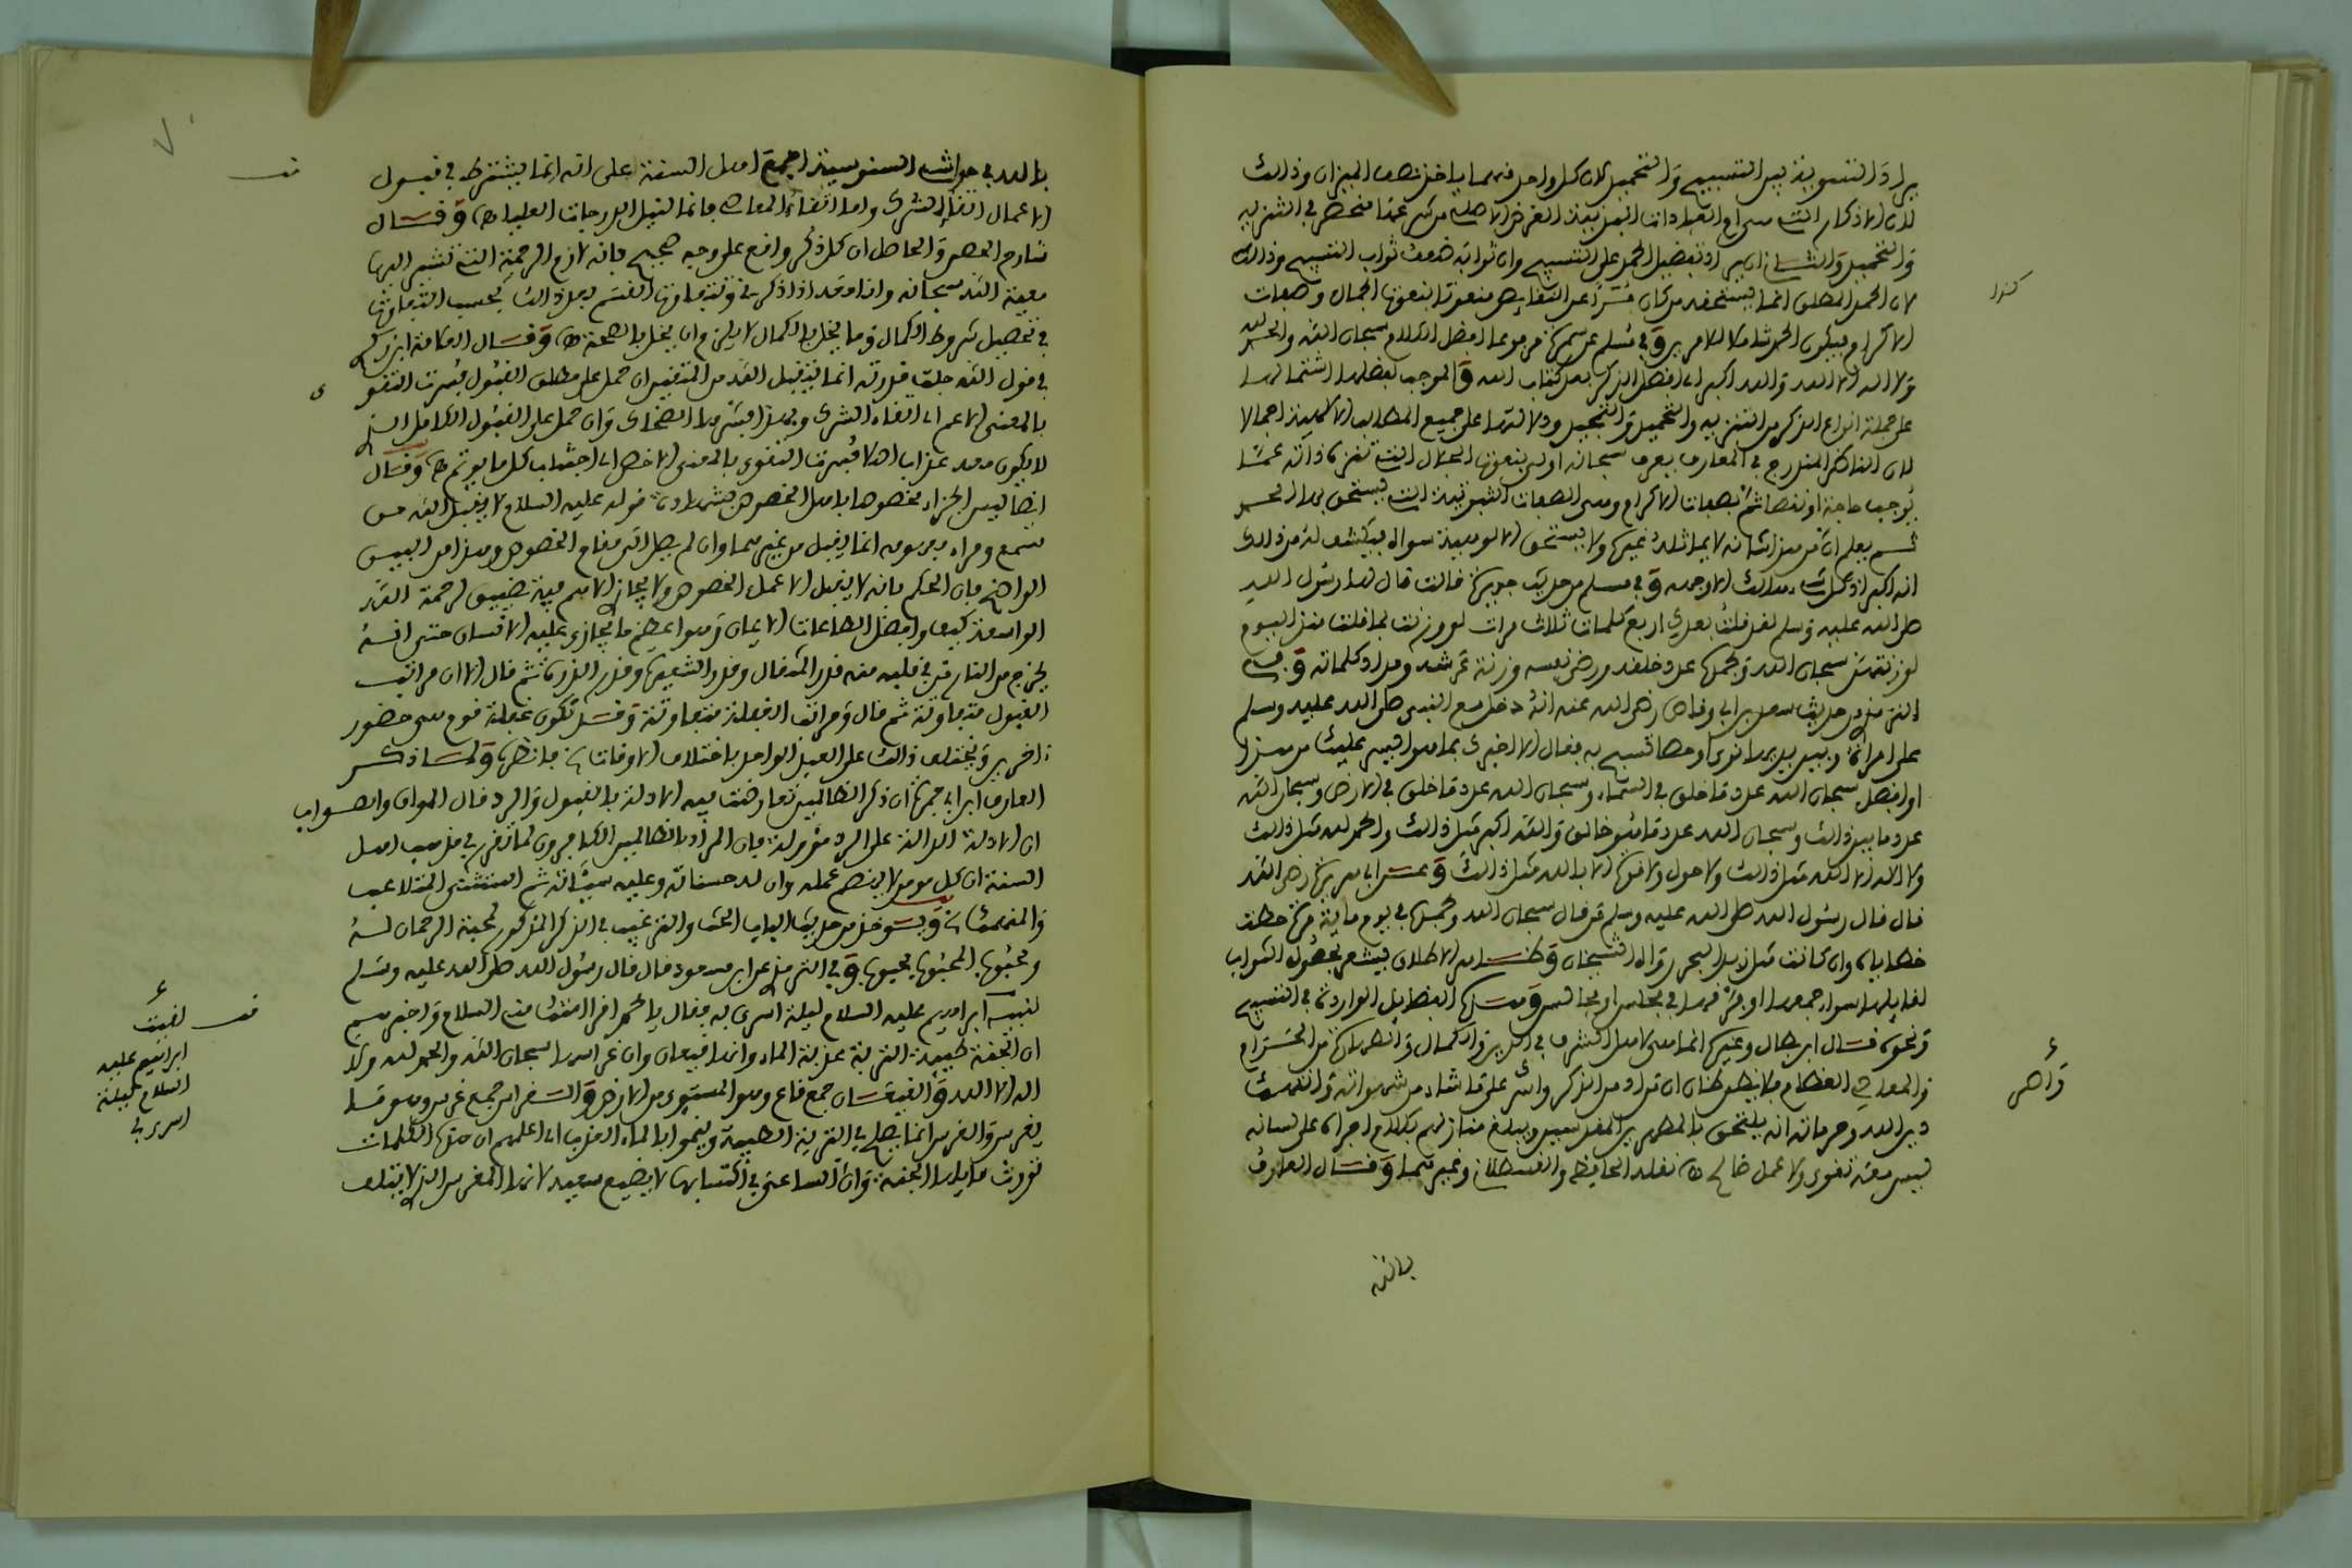 يراد التسوية بين التسبيح والتحميد لان كل واحد منهما ياخذ نصف الميزان وذلك
لان الاذكار التي هي ام العبادات البدنية الغرض الاصلي من شرعها منحصر في التنزيه
والتحميد والثاني ان يراد تفضيل الحمد على التسبيح وان ثوابه ضعف ثواب التسبيح وذلك
لان الحمد المطلق انما يستحقه من كان مبرأ عن النقايص منعوتا بنعوت الجمال وصفات
الاكرام فيكون الحمد شاملا للامرين وفي مسلم عن سمرة مرفوعا افضل الكلام سبحان الله والحمد لله
ولا اله الا الله والله اكبر اي افضل الذكر بعد كتاب الله والموجب لفضلها اشتمالها
على جملة انواع الذكر من التنزيه والتحميد والتمجيد ودلالتها على جميع المطالب الالهية اجمالا
لان الناظر المتدرج في المعارف يعرف سبحانه اولا بنعوت الجلال التي تنزه ذاته عما
يوجب حاجة او نقصا ثم بصفات الاكرام وهي الصفات الثبوتية التي يستحق بها الحمد
ثم يعلم ان من هذا شانه لا يماثله غيره ولا يستحق الالوهية سواه فيكشف له من ذلك
انه اكبر اذ كل شيء هالك الا وجهه وفي مسلم من حديث جويرية قالت قال لها رسول الله
صلى الله عليه وسلم لقد قلت بعدك اربع كلمات ثلاث مرات لو وزنت بما قلت منذ اليوم
لوزنتهن سبحان الله وبحمده عدد خلقه ورضى نفسه وزنة عرشه ومداد كلماته وفي
الترمذي من حديث سعد بن ابي وقاص رضي الله عنه انه دخل مع النبي صلى الله عليه وسلم
على امراة وبين يديها نوى او حصا تسبح به فقال الا اخبرك بما هو ايسر عليك من هذا
او افضل سبحان الله عدد ما خلق في السماء وسبحان الله عدد ما خلق في الارض وسبحان الله
عدد ما بين ذلك وسبحان الله عدد ما هو خالق والله اكبر مثل ذلك والحمد لله مثل ذلك
ولا اله الا الله مثل ذلك ولا حول ولا قوة الا بالله مثل ذلك وعن ابي هريرة رضي الله
قال قال رسول الله صلى الله عليه وسلم من قال سبحان الله وبحمده في يوم ماية مرة حطت
خطاياه وان كانت مثل زبد البحر رواه الشيخان وظاهر الاطلاق يشعر بحصول الثواب
لقايلها سواء جمعها او فرقها في مجلس او مجالس وهذه الفضايل الواردة في التسبيح
ونحوه قال ابن بطال وغيره انما هي لاهل الشرف في الدين والكمال والطهارة من الحرام
والمعاصي العظام فلا يظن ظان ان من ادمن الذكر واصر على ما شاء من شهواته وانتهك
دين الله وحرماته انه يلتحق بالمطهرين المقدسين ويبلغ منازلهم بكلام اجراه على لسانه
ليس معه تقوى ولا عمل صالح نقله الحافظ والقسطلاني وغيرهما وقال العارف
بالله
كذا
واصر
بالله في حواشي السنوسية اجمع اهل السنة على انه انما يشترط في قبول
الاعمال اتقاء الشرك واما اتقاء المعاصي فانما لنيل الدرجات العليا وقال
شارح الحصن والحاصل ان كل ذكر واقع على وجه صحيح فانه لازم الرحمة التي تشير اليها
معية الله سبحانه واذا وقد اذا ذكرتني وتفاوتها القسم بعد ذلك بحسب التفاوت
في تحصيل شروط الكمال وما يخل بالكمال لا يلزم ان يخل بالصحة وقال العلامة ابن زكري
في قول الله جلت قدرته انما يتقبل الله من المتقين ان حمل على مطلق القبول فسرت التقوى
بالمعنى الاعم اي اتقاء الشرك وبهذا فسرها الضحاك وان حمل على القبول الكامل الذي
لا يكون معه عذاب اصلا فسرت التقوى بالمعنى الاخص اي اجتناب كل ما يوثم وقال
ايضا ليس الجزاء مخصوصا باهل الخصوص بشهادة قوله عليه السلام لا يقبل الله من
مسمع ومراء ومفهومه انما يقبل من غيرهما وان لم يصل الى مقام الخصوص وهذا من البين
الواضح فان الحكم بانه لا يقبل الا عمل الخصوص ولا يجازى الا هم فيه تضييق لرحمة الله
الواسعة كيف وافضل الطاعات الايمان وهو اعظم ما يجازى عليه الانسان حتى انه
يخرج من النار من في قلبه منه قدر المثقال وقدر الشعيرة وقدر الذرة ثم قال الا ان مراتب
القبول متفاوتة ثم قال ومراتب الغفلة متفاوتة وقد تكون غفلة قوم هي حضور
اخرين ويختلف ذلك على العبد الواحد باختلاف الاوقات فانظره ولما ذكر
العارف ابن ابي جمرة ان ذكر الظالمين تعارضت فيه الادلة بالقبول والرد قال المواق والصواب
ان الادلة الدالة على الرد مؤولة فان المراد بالظالمين الكافرون لما تقرر في مذهب اهل
السنة ان كل مومن لا يبطل عمله وان له حسناته وعليه سيئاته ثم استثنى المتلاعب
ويؤخذ من حديث الباب الحث والترغيب في الذكر المذكور لمحبة الرحمان له
ومحبوب المحبوب محبوب وفي الترمذي عن ابن مسعود قال قال رسول الله صلى الله عليه وسلم
لنبيه ابراهيم عليه السلام ليلة اسري به فقال يا محمد اقرا امتك مني السلام واخبرهم
ان الجنة طيبة التربة عذبة الماء وانها قيعان وان غراسها سبحان الله والحمد لله ولا
اله الا الله والقيعان جمع قاع وهو المستوي من الارض والغراس جمع غرس وهو ما
يغرس والغرس انما يصلح في التربة الطيبة وينموا بالماء العذب اي اعلمهم ان هذه الكلمات
تورث قايلها الجنة وان الساعي في اكتسابها لا يضيع سعيه لانها المغرس الذي لا يتلف
لقيت
ابراهيم عليه
السلام ليلة
اسري بي